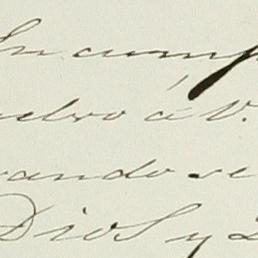 En cump
uelvo á V.
rando se
Dios y